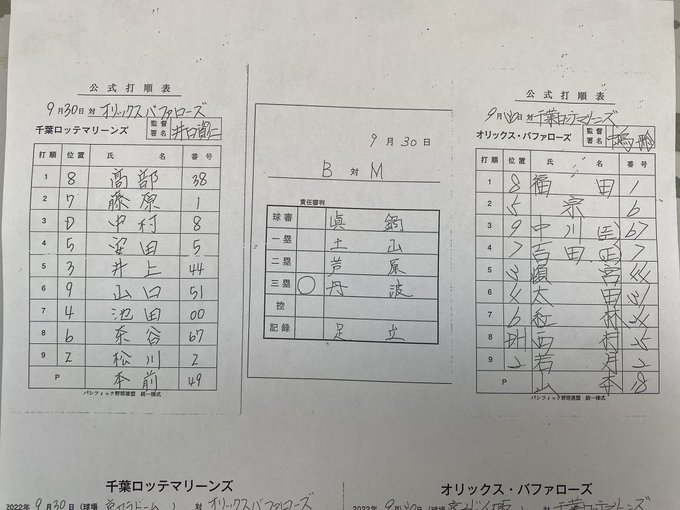 公式打順表
9月30日 対 オリックスバファローズ
千葉ロッテマリーンズ 監督署名 井口資仁
打順 位置 氏名 番号
1 8 髙部 38
2 7 藤原 1
3 D 中村 8
4 5 安田 5
5 3 井上 44
6 9 山口 51
7 4 池田 00
8 6 茶谷 67
9 2 松川 2
P 本前 49
パシフィック野球連盟 統一様式
9月30日
B 対 M
責任審判
球審 眞鍋
一塁 土山
二塁 芦原
三塁 ○ 丹波
控
記録 足立
公式打順表
9月30日 対 千葉ロッテマリーンズ
オリックス・バファローズ 監督署名
打順 位置 氏名 番号
1 8 福田 1
2 5 宗 6
3 9 中川圭 67
4 7 吉田正 7
5 3 頓宮 44
6 4 太田 31
7 6 紅林 24
8 DH 西村 25
9 2 若月 2
P 山本 18
パシフィック野球連盟 統一様式
千葉ロッテマリーンズ
2022年9月30日(球場 京セラドーム) 対 オリックスバファローズ
オリックス・バファローズ
2022年9月30日(球場 対 千葉ロッテマリーンズ